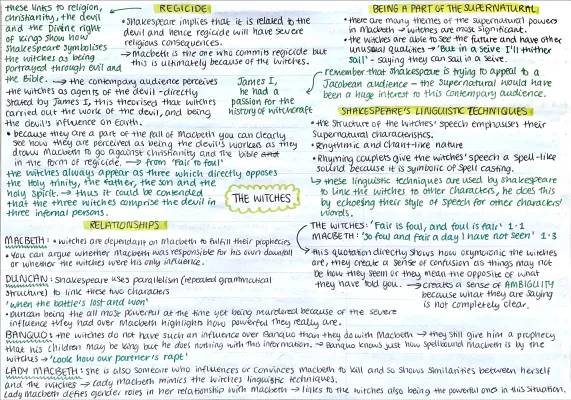 these links to religion,
christianity, the devil
and the Divine right
of kings show how
Shakespeare symbolises
the witches as being
portrayed through evil and
the Bible.
REGICIDE
• Shakespeare implies that it is related to the
devil and hence regicide will have severe
religious consequences.
→ Macbeth is the one who commits regicide but
this is ultimately because of the witches.
→ the contempary audience perceives
the witches as agents of the devil - directly
stated by James I, this theorised that witches
carried out the work of the devil, and being
the devil's influence on Earth.
James I,
he had a
passion for the
history of witchcraft
• because they are a part of the fall of Macbeth you can clearly
see how they are perceived as being the devil's workers as they
draw Macbeth to go against christianity and the bible and
in the form of regicide. → from 'fair to foul'
the witches always appear as three which directly opposes
the Holy trinity, the father, the son and the
holy spirit. → thus it could be contended
that the three witches comprise the devil in
three infernal persons.
BEING A PART OF THE SUPERNATURAL
• there are many themes of the supernatural powers
in Macbeth → witches are most significant.
• the witches are able to see the future and have other
unusual qualities → 'But in a seive I'll thither
sail' - saying they can sail in a seive.
remember that Shakespeare is trying to appeal to a
Jacobean audience - the Supernatural would have
been a huge interest to this contempary audience.
SHAKESPEARE'S LINGUISTIC TECHNIQUES
• the structure of the witches' speech emphasises their
supernatural characteristics.
• Rhythmic and chant-like nature
• Rhyming couplets give the witches' speech a spell-like
sound because it is symbolic of spell casting.
↳ these linguistic techniques are used by Shakespeare
to link the witches to other characters, he does this
by echoeing their style of speech for other characters'
words.
THE WITCHES
THE WITCHES: 'Fair is foul, and foul is fair' 1-1
MACBETH: 'So foul and fair a day I have not seen' 1-3
this quotation directly shows how oxymoronic the witches
are, they create a sense of confusion as things may not
be how they seem or they mean the opposite of what
they have told you. → creates a sense of AMBIGUITY
because what they are saying
is not completely clear.
RELATIONSHIPS
MACBETH: • witches are dependant on Macbeth to fulfill their prophecies
• You can argue whether Macbeth was responsible for his own downfall
or whether the witches were his only influence.
DUNCAN: Shakespeare uses parallelism (repeated grammatical
structure) to link these two characters
'when the battle's lost and won'
• Duncan being the all most powerful at the time yet being murdered because of the severe
influence they had over Macbeth highlights how powerful they really are.
BANQUO: the witches do not have such an influence over Banquo than they do with Macbeth → they still give him a prophecy
that his children may be king but he does nothing with this information. → Banquo knows just how spellbound Macbeth is by the
witches → 'Look how our partner's rapt'
LADY MACBETH: she is also someone who influences or convinces Macbeth to kill and so shows similarities between herself
and the witches → Lady Macbeth mimics the witches linguistic techniques.
Lady Macbeth defies gender roles in her relationship with Macbeth → links to the witches also being the powerful ones in this situation.